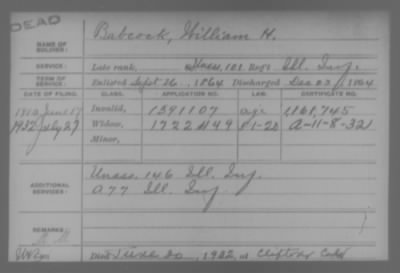 DEAD
Babcock, William H.
NAME OF SOLDIER:
SERVICE: Late rank, Regt. Ill. Inf.
TERM OF SERVICE: Enlisted Sept 26, 1864 Discharged Dec 23, 1864
DATE OF FILING. CLASS. APPLICATION NO. LAW. CERTIFICATE NO.
1910 June 17 Invalid, 1391107 age 1161,745
1932 July 29 Widow, 1722449 A-11-8-32
Minor,
ADDITIONAL SERVICES: Unass. 146 Ill. Inf.
A 77 Ill. Inf.
REMARKS:
Died June 20, 1932, at